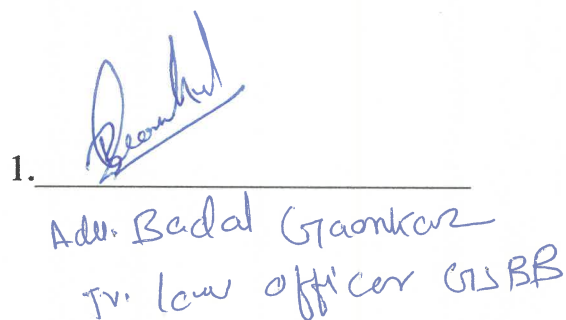 1.
Adv. Badal Gaonkar
Jr. law officer GSBB